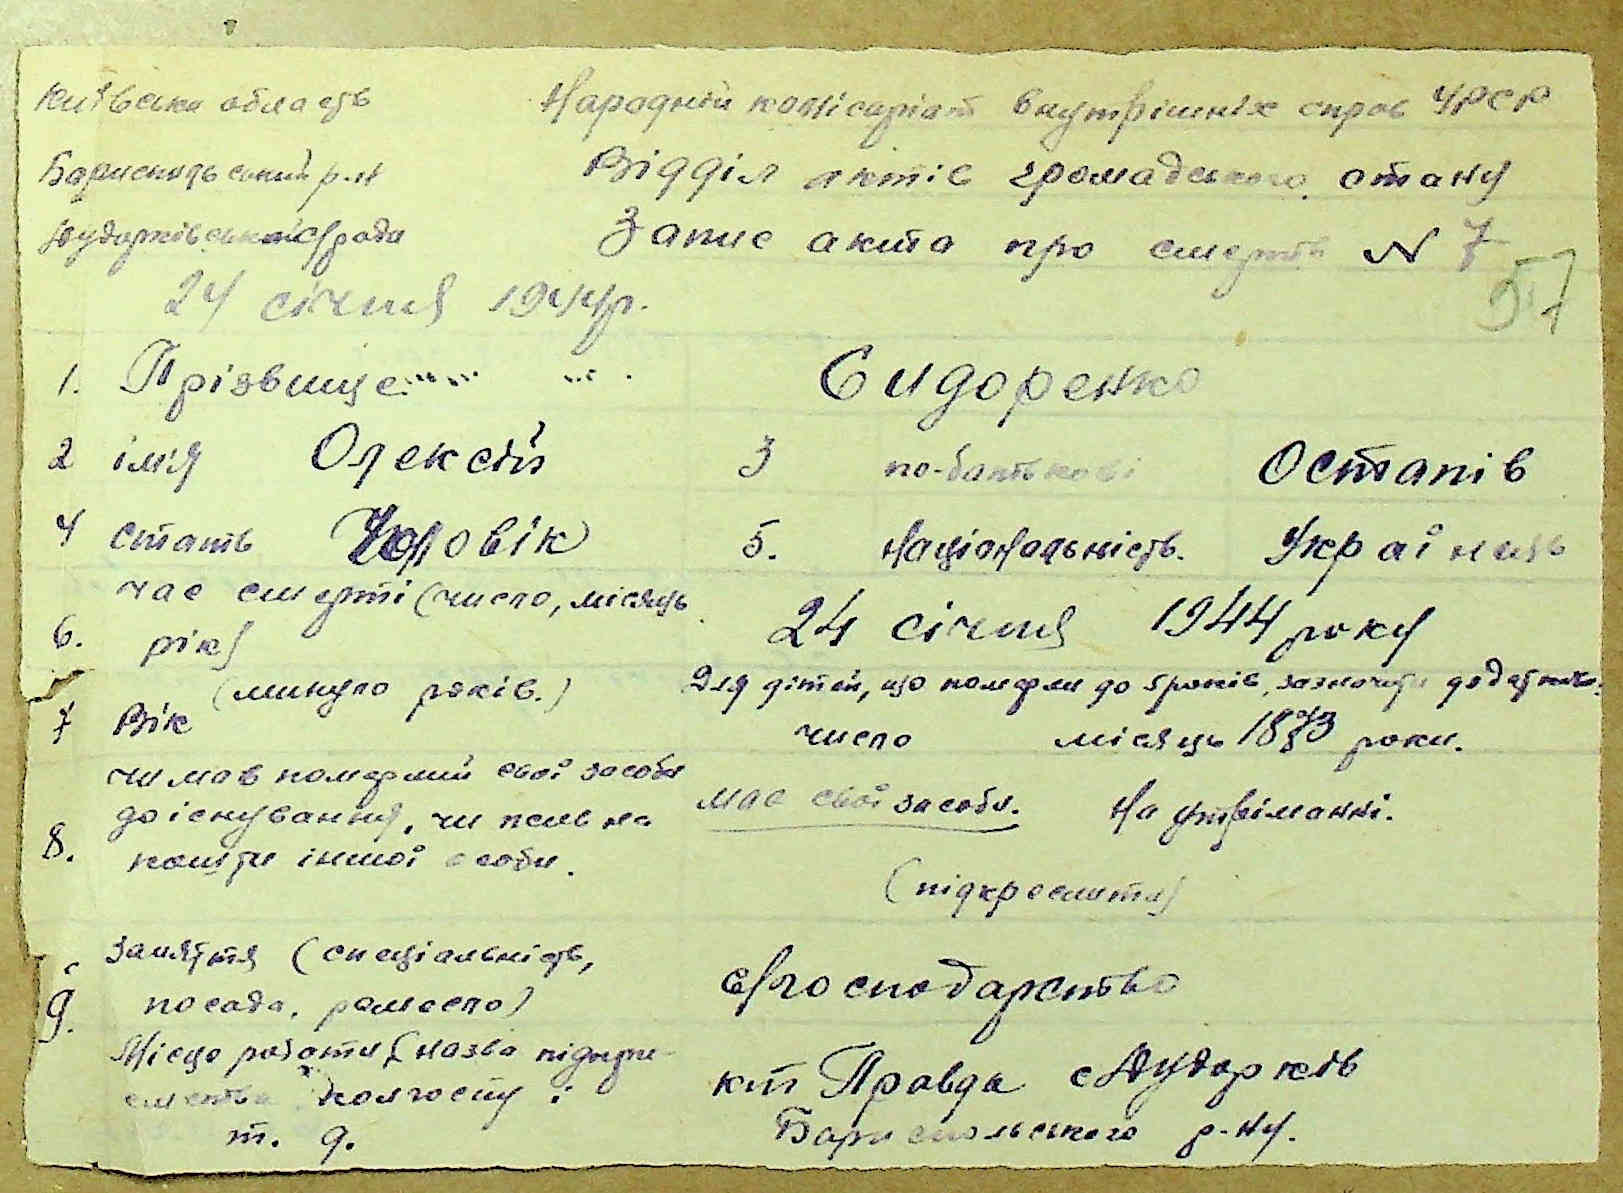 Київська область Народній комісаріат внутрішніх справ УРСР
Бориспільський р-н Відділ актів громадського стану
Дударківська с/рада Запис акта про смерть N 7
57
24 січня 1944р.
1. Прізвище Сидоренко
2 ім'я Олексій 3 по-батькові Остапів
4 стать Чоловік 5. Національність. Українець
час смерті (число, місяць 24 січня 1944 року
6. рік)
(минуло років.) Для дітей, що померли до 5 років, зазначити додатково.
7 Вік число місяць 1873 роки.
чи мав померлий свої засоби
до існування, чи жив на має свої засоби. На утріманні.
8. кошти іншої особи. (підкреслити)
заняття (спеціальність,
9. посада, ремесло) с/господарство
Місце роботи (назва підпри-
ємства колгоспу і кт Правда с Дударків
т. д. Бориспольського р-ну.